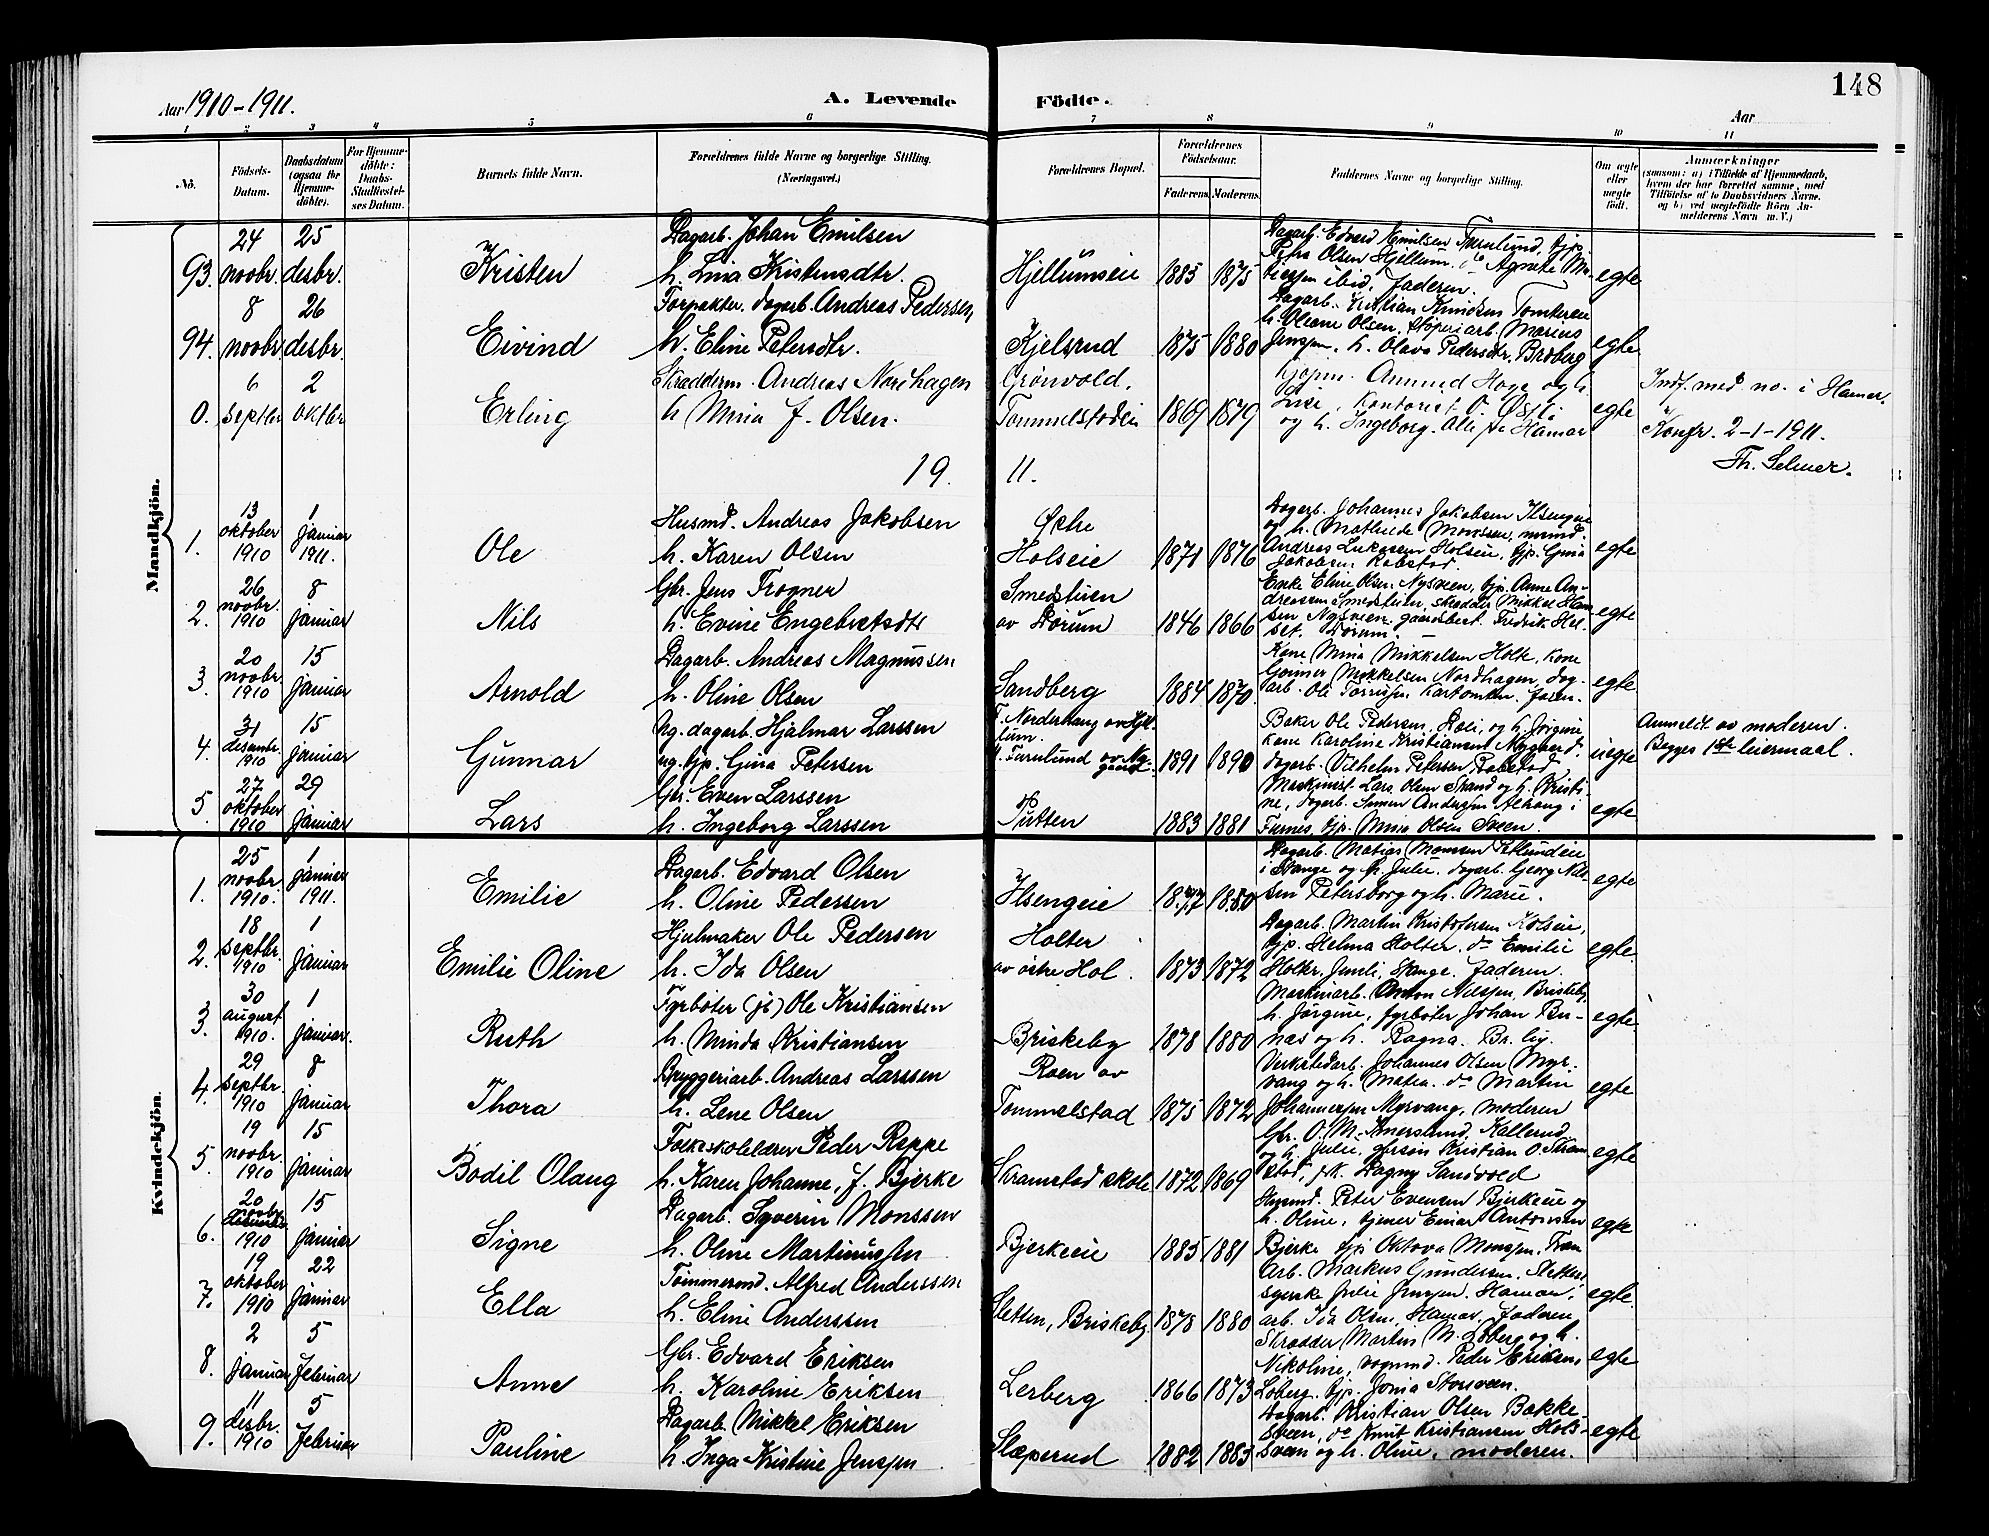 148
Aar 1910-1911.
A. Levende Födte.
Aar
1 2 3 4 5 6 7 8 9 10 11
Nö.
Födsels-Datum.
Daabsdatum (ogsaa for Hjemmedöbte).
For Hjemmedöbte: Daabs-Stadfæstelses Datum.
Barnets fulde Navn.
Forældrenes fulde Navne og borgerlige Stilling. (Næringsvei.)
Forældrenes Bopæl.
Forældrenes Födselsaar.
Faderens. Moderens.
Faddernes Navne og borgerlige Stilling.
Om ægte eller uægte födt.
Anmærkninger
Mandkjön.
93. 24 novbr. 25 desbr. Kristen
Dagarb. Johan Emilsen
h. Lina Kristensdtr.
Hjellumseie 1885 1875
Dagarb. Edvard Emilsen
Petra Olsen Hjellum. do Agnete
ibid, faderen.
egte
94. 8 novbr. 26 desbr. Eivind
Forpakter, dagarb. Andreas Pedersen
h. Eline Petersdtr.
Kjelsrud 1875 1880
Dagarb. Kristian Knudsen Tomteren
h. Oleane Olsen, støperiarb. Marius
Jenssen, h. Olava Pedersdtr. Broberg
egte
0. 6 septbr 2 oktbr Erling
Skrædderm. Andreas Nordhagen
h. Mina f. Olsen.
Grönvold, Tommelstadeie 1869 1879
Kjøpm. Amund Hoge og h.
Lise, Kontorist O. Østli
og h. Ingeborg. Alle fra Hamar
egte
Indf. med no. i Hamar.
Konfr. 2-1-1911.
Th. Selmer.
19 11.
1. 13 oktober 1910 1 januar 1911. Ole
Husmd. Andreas Jakobsen
h. Karen Olsen
Østre Holseie 1871 1876
Dagarb. Johannes Jakobsen Ilsengeie
og h. Mathilde Monssen,
Andreas Lukassen Holseie, tjp. Gina
Jakobsen Rabstad.
egte
2. 26 novbr. 1910 8 januar Nils
Gbr. Jens Trogner
h. Evine Engebretsdtr
Smedstuen av Dörum 1846 1866
Enke Eline Olsen Nysveen, tjp. Anne Andreassen
Smedstuen, skrædder Mikkel Hansen
Nysveen, gaardsbest. Fredrik Helset. Dörum.
egte
3. 20 novbr. 1910 15 januar Arnold
Dagarb. Andreas Magnussen
h. Oline Olsen
Sandberg 1884 1870
Kone Mina Mikkelsen Holte, kone
Mikkelsen Nordhagen, dagarb.
Ole
egte
4. 31 desembr. 1910 15 januar Gunnar
Ug. dagarb. Hjalmar Larssen
ug. tjp. Gina Petersen
F. Norderhaug av Hjellum.
M. Farnlund av Nygaard. 1891 1890
Baker Ole Pedersen, og h. Jørgine
kone Karoline Kristiansen Nygaard.
dagarb. Vilhelm Petersen Rabstad
uegte
Anmeldt av moderen.
Begges 1ste leiermaal.
5. 27 oktober 1910 29 januar Lars
Gbr. Even Larssen
h. Ingeborg Larssen
Putten 1883 1881
Maskinist Lars Olsen Strand og h. Kristine,
dagarb. Simen Anderssen Alhaug i
Furnes, tjp. Mina Olsen Sveen.
egte
Kvindekjön.
1. 25 novbr 1910. 1 januar 1911. Emilie
Dagarb. Edvard Olsen
h. Oline Pedersen
Ilsengeie 1877 1880
Dagarb. Matias Monssen
i Stange og h. Julie. dagarb. Georg Nilssen
Petersborg og h. Marie.
egte
2. 18 septbr. 1910 1 januar Emilie Oline
Hjulmaker Ole Pedersen
h. Ida Olsen
Holter av östre Hol. 1873 1872
Dagarb. Martin Kristofersen Kolseie,
tjp. Helma Holter, do Emilie
Holter. Stange. faderen.
egte
3. 30 august 1910. 1 januar. Ruth
Fyrböter (js) Ole Kristiansen
h. Minda Kristiansen
Briskeby 1878 1880
Maskinarb. Anton Nilssen, Briskeby,
h. Jörgine, fyrböter Johan
og h. Ragna.
egte
4. 29 septbr. 1910 8 januar Thora
Bryggeriarb. Andreas Larssen
h. Lene Olsen
Roen av Tommelstad 1875 1872
Verkstedarb. Johannes Olsen Myrvang
og h. Matea. do Martin
Johannessen Myrvang, moderen
egte
5. 19 novbr. 1910 15 januar Bodil Olaug
Folkeskolelærer Peder Reppe
h. Karen Johanne, f. Bjerke
Skramstad skole 1872 1869
Gbr. O. M. Amerslund, Kallerud
og h. Julie, gbrsön Kristian O. Skramstad,
frk. Dagny Sandvold
egte
6. 20 novbr. 1910 15 januar Signe
Dagarb. Syverin Monssen
h. Oline Martinussen
Bjerkeeie 1885 1881
Husmd. Peter Evensen Bjerkeeie og
h. Oline, tjener Einar Antonsen
Bjerke tjp Oktova Monssen.
egte
7. 19 oktober 1910 22 januar Ella
Tömmermd. Alfred Anderssen
h. Eline Anderssen
Sletten, Briskeby. 1878 1880
arb. Markus Gundersen,
syerske Julie Jenssen. Hamar,
arb. Ida Olsen, Hamar. faderen
egte.
8. 2 januar 5 februar Anne
Gbr. Edvard Eriksen
h. Karoline Eriksen
Lerberg 1866 1873
Skrædder Martin M. Löberg og h.
Nikoline, Peder Eriksen,
Löberg. tjp. Jonia Storsveen.
egte
9. 11 desbr. 1910 5 februar Pauline
Dagarb. Mikkel Eriksen
h. Inga Kristine Jenssen
Slæperud 1882 1883
Dagarb. Kristian Olsen Bakkesveen,
do Knut Kristiansen Holssveen
og h. Oline, moderen.
egte